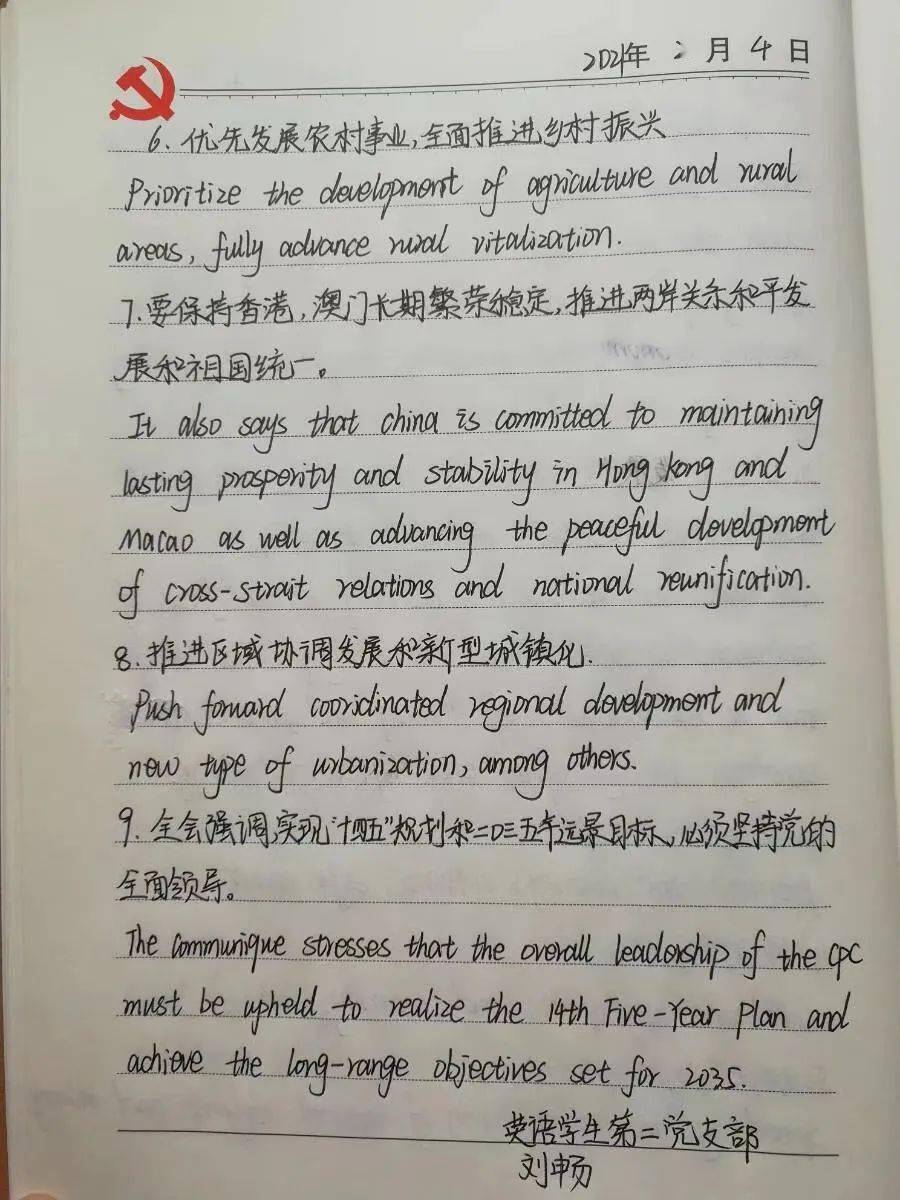 2021年2月4日
6、优先发展农村事业,全面推进乡村振兴
Prioritize the development of agriculture and rural
areas, fully advance rural vitalization.
7.要保持香港,澳门长期繁荣稳定,推进两岸关系和平发
展和祖国统一。
It also says that china is committed to maintaining
lasting prosperity and stability in Hong kong and
Macao as well as advancing the peaceful development
of cross-strait relations and national reunification.
8.推进区域协调发展和新型城镇化.
Push forward cooridinated regional development and
new type of urbanization, among others.
9.全会强调,实现“十四五”规划和二〇三五年远景目标,必须坚持党的
全面领导。
The communique stresses that the overall leadership of the CPC
must be upheld to realize the 14th Five-Year Plan and
achieve the long-range objectives set for 2035.
英语学生第二党支部
刘畅